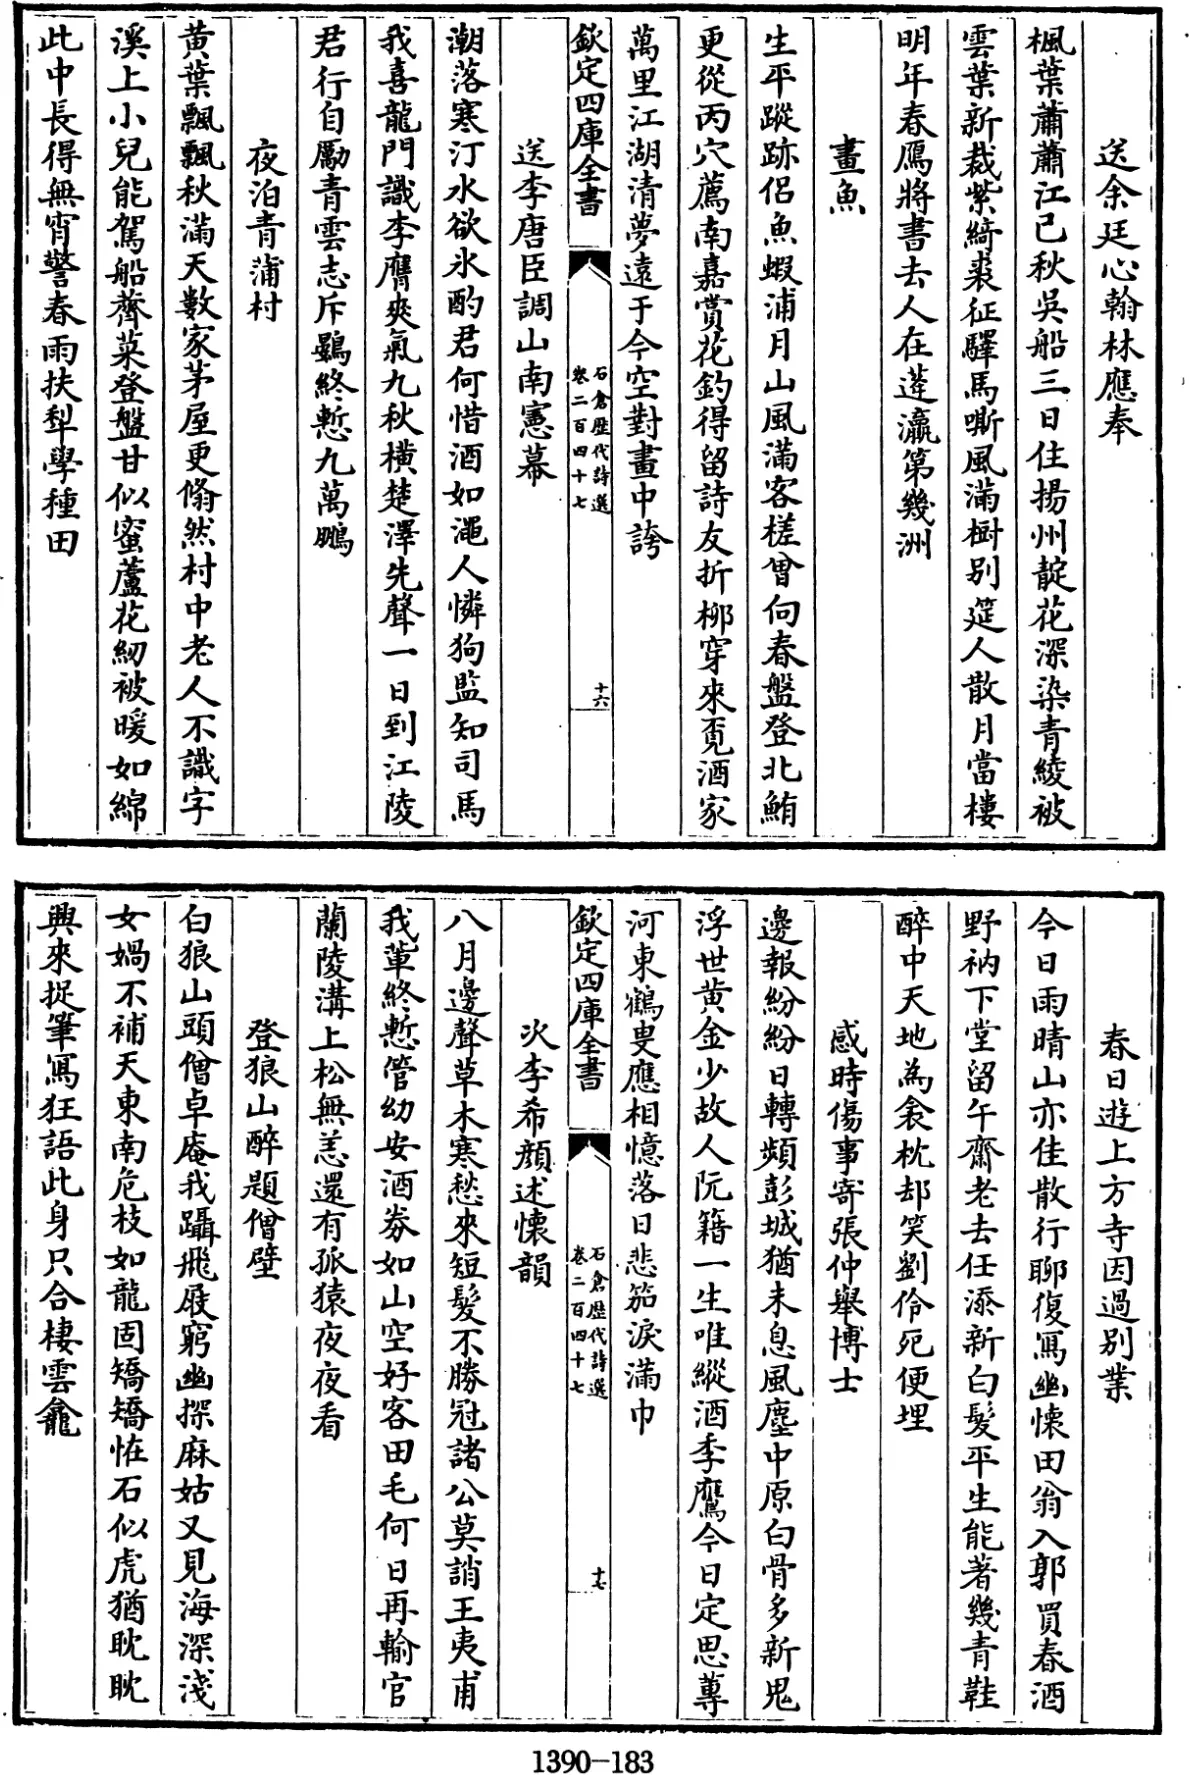 送余廷心翰林應奉
楓葉蕭蕭江已秋吳船三日住揚州靛花深染青綾被
雲葉新裁紫綺裘征驛馬嘶風滿樹別筵人散月當樓
明年春鴈將書去人在蓬瀛第幾洲
畫魚
生平蹤跡侶魚蝦浦月山風滿客槎曾向春盤登北鮪
更從丙穴薦南嘉賞花釣得留詩友折柳穿來覓酒家
萬里江湖清夢遠于今空對畫中誇
欽定四庫全書
石倉歷代詩選
卷二百四十七
十六
送李唐臣調山南憲幕
潮落寒汀水欲氷酌君何惜酒如澠人憐狗監知司馬
我喜龍門識李膺爽氣九秋橫楚澤先聲一日到江陵
君行自勵青雲志斥鷃終慙九萬鵬
夜泊青蒲村
黄葉飄飄秋滿天數家茅屋更翛然村中老人不識字
溪上小兒能駕船薺菜登盤甘似蜜蘆花紉被暖如綿
此中長得無宵警春雨扶犁學種田
春日遊上方寺因過別業
今日雨晴山亦佳散行聊復寫幽懷田翁入郭買春酒
野衲下堂留午齋老去任添新白髪平生能著幾青鞋
醉中天地為衾枕却笑劉伶死便埋
感時傷事寄張仲舉博士
邊報紛紛日轉頻彭城猶未息風塵中原白骨多新鬼
浮世黄金少故人阮籍一生唯縱酒季鷹今日定思蓴
河東鶴叟應相憶落日悲笳淚滿巾
欽定四庫全書
石倉歷代詩選
卷二百四十七
十七
次李希顔述懷韻
八月邊聲草木寒愁來短髪不勝冠諸公莫誚王夷甫
我輩終慙管幼安酒券如山空好客田毛何日再輸官
蘭陵溝上松無恙還有孤猿夜夜看
登狼山醉題僧壁
白狼山頭僧卓庵我躡飛屐窮幽探麻姑又見海深淺
女媧不補天東南危枝如龍固矯矯怪石似虎猶耽耽
興來捉筆寫狂語此身只合棲雲龕
1390-183